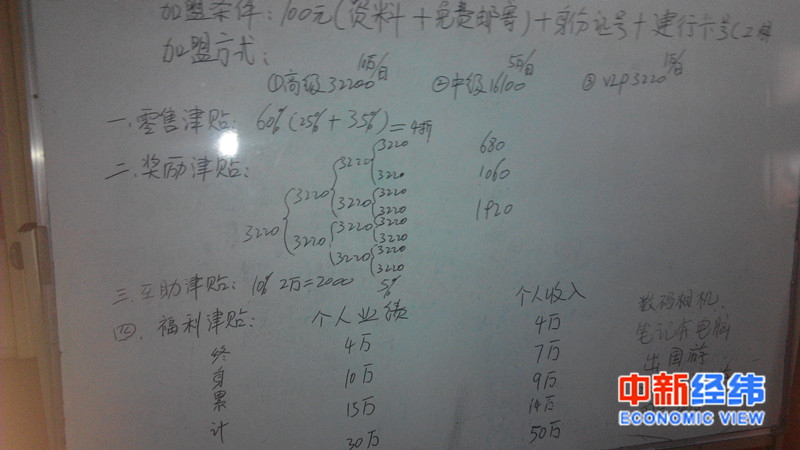 加盟条件：100元(资料＋免费邮寄)＋身份证号＋建行卡号(工商
加盟方式：
①高级32200 10万/日 ②中级16100 5万/日 ③VIP3220 1万/日
一.零售津贴：60%(25%＋35%)＝4折
二.奖励津贴：
3220 3220 3220 3220 680
3220 1060
3220 3220
3220 1920
3220 3220 3220
3220
3220 3220
3220
三.互助津贴：10% 2万＝2000 5%
四.福利津贴：个人业绩 个人收入 数码相机.
终 4万 4万 笔记本电脑
身 10万 7万 出国游
累 15万 9万
计 30万 14万
50万
中新经纬
ECONOMIC VIEW